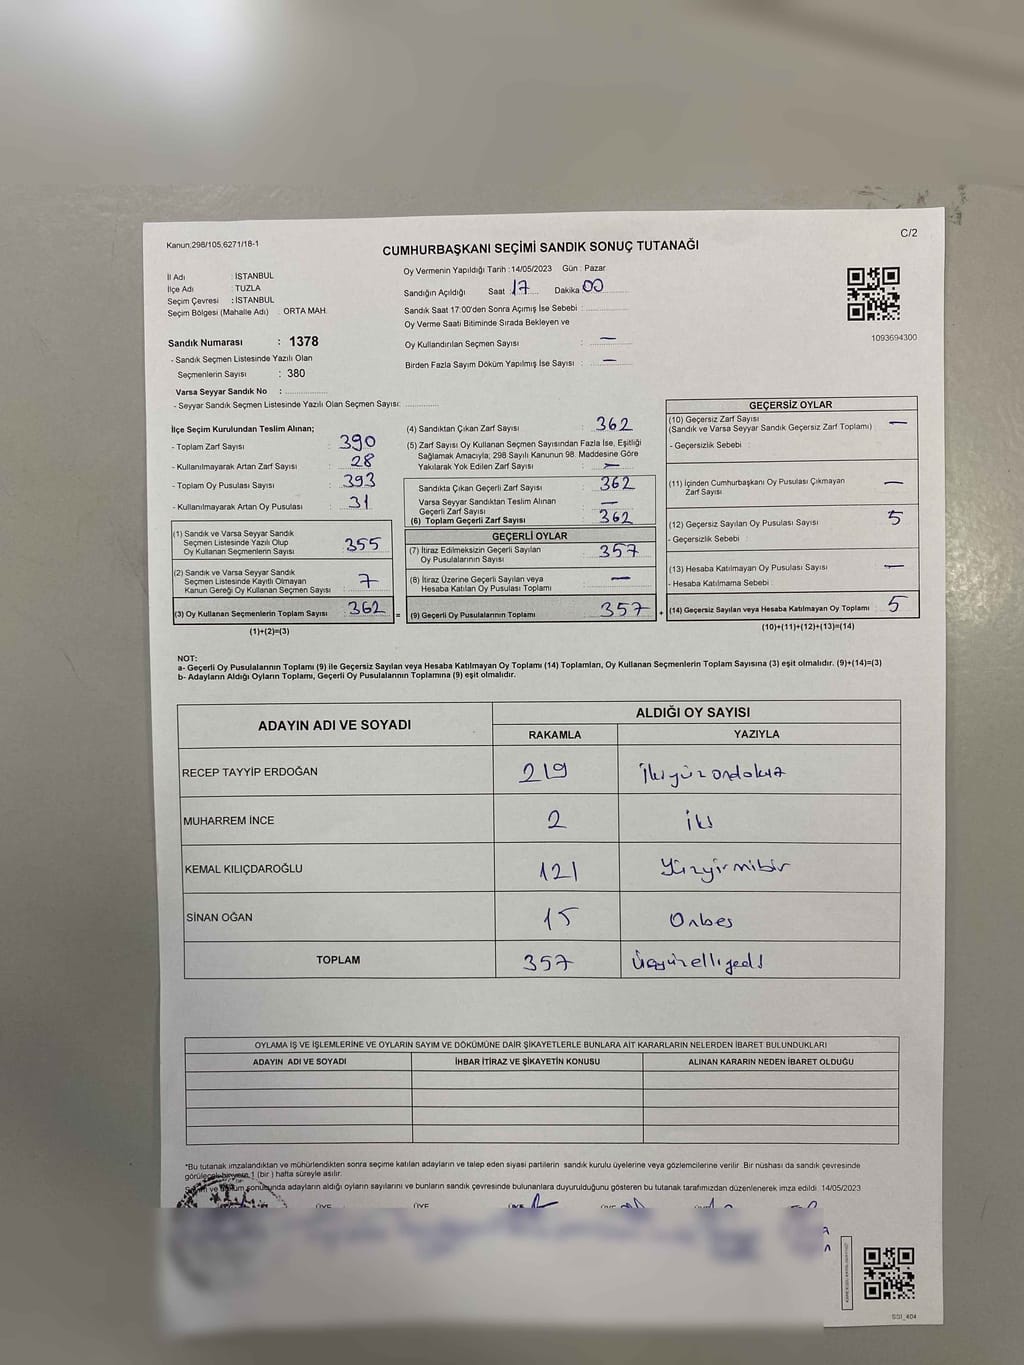 Kanun:298/105,6271/18-1
C/2
CUMHURBAŞKANI SEÇİMİ SANDIK SONUÇ TUTANAĞI
İl Adı : İSTANBUL
İlçe Adı : TUZLA
Seçim Çevresi : İSTANBUL
Seçim Bölgesi (Mahalle Adı) : ORTA MAH.
Oy Vermenin Yapıldığı Tarih : 14/05/2023 Gün : Pazar
Sandığın Açıldığı Saat 17 Dakika 00
Sandık Saat 17:00'den Sonra Açımış İse Sebebi :
Oy Verme Saati Bitiminde Sırada Bekleyen ve
Oy Kullandırılan Seçmen Sayısı : —
Birden Fazla Sayım Döküm Yapılmış İse Sayısı : —
1093694300
Sandık Numarası : 1378
- Sandık Seçmen Listesinde Yazılı Olan
Seçmenlerin Sayısı : 380
Varsa Seyyar Sandık No :
- Seyyar Sandık Seçmen Listesinde Yazılı Olan Seçmen Sayısı:
İlçe Seçim Kurulundan Teslim Alınan;
- Toplam Zarf Sayısı : 390
- Kullanılmayarak Artan Zarf Sayısı : 28
- Toplam Oy Pusulası Sayısı : 393
- Kullanılmayarak Artan Oy Pusulası : 31
(1) Sandık ve Varsa Seyyar Sandık
Seçmen Listesinde Yazılı Olup
Oy Kullanan Seçmenlerin Sayısı 355
(2) Sandık ve Varsa Seyyar Sandık
Seçmen Listesinde Kayıtlı Olmayan
Kanun Gereği Oy Kullanan Seçmen Sayısı 7
(3) Oy Kullanan Seçmenlerin Toplam Sayısı 362
(1)+(2)=(3)
(4) Sandıktan Çıkan Zarf Sayısı : 362
(5) Zarf Sayısı Oy Kullanan Seçmen Sayısından Fazla İse, Eşitliği
Sağlamak Amacıyla; 298 Sayılı Kanunun 98. Maddesine Göre
Yakılarak Yok Edilen Zarf Sayısı : —
Sandıkta Çıkan Geçerli Zarf Sayısı : 362
Varsa Seyyar Sandıktan Teslim Alınan
Geçerli Zarf Sayısı : —
(6) Toplam Geçerli Zarf Sayısı : 362
GEÇERLİ OYLAR
(7) İtiraz Edilmeksizin Geçerli Sayılan
Oy Pusulalarının Sayısı : 357
(8) İtiraz Üzerine Geçerli Sayılan veya
Hesaba Katılan Oy Pusulası Toplamı : —
= (9) Geçerli Oy Pusulalarının Toplamı 357
GEÇERSİZ OYLAR
(10) Geçersiz Zarf Sayısı
(Sandık ve Varsa Seyyar Sandık Geçersiz Zarf Toplamı) —
- Geçersizlik Sebebi :
(11) İçinden Cumhurbaşkanı Oy Pusulası Çıkmayan
Zarf Sayısı —
(12) Geçersiz Sayılan Oy Pusulası Sayısı 5
- Geçersizlik Sebebi :
(13) Hesaba Katılmayan Oy Pusulası Sayısı —
- Hesaba Katılmama Sebebi :
+ (14) Geçersiz Sayılan veya Hesaba Katılmayan Oy Toplamı 5
(10)+(11)+(12)+(13)=(14)
NOT:
a- Geçerli Oy Pusulalarının Toplamı (9) ile Geçersiz Sayılan veya Hesaba Katılmayan Oy Toplamı (14) Toplamları, Oy Kullanan Seçmenlerin Toplam Sayısına (3) eşit olmalıdır. (9)+(14)=(3)
b- Adayların Aldığı Oyların Toplamı, Geçerli Oy Pusulalarının Toplamına (9) eşit olmalıdır.
ADAYIN ADI VE SOYADI ALDIĞI OY SAYISI
RAKAMLA YAZIYLA
RECEP TAYYİP ERDOĞAN 219 İkiyüzondokuz
MUHARREM İNCE 2 iki
KEMAL KILIÇDAROĞLU 121 Yüzyirmibir
SİNAN OĞAN 15 Onbeş
TOPLAM 357 Üçyüzelliyedi
OYLAMA İŞ VE İŞLEMLERİNE VE OYLARIN SAYIM VE DÖKÜMÜNE DAİR ŞİKAYETLERLE BUNLARA AİT KARARLARIN NELERDEN İBARET BULUNDUKLARI
ADAYIN ADI VE SOYADI İHBAR İTİRAZ VE ŞİKAYETİN KONUSU ALINAN KARARIN NEDEN İBARET OLDUĞU
*Bu tutanak imzalandıktan ve mühürlendikten sonra seçime katılan adayların ve talep eden siyasi partilerin sandık kurulu üyelerine veya gözlemcilerine verilir. Bir nüshası da sandık çevresinde
1 (bir) hafta süreyle asılır.
sonucunda adayların aldığı oyların sayılarını ve bunların sandık çevresinde bulunanlara duyurulduğunu gösteren bu tutanak tarafımızdan düzenlenerek imza edildi. 14/05/2023
ÜYE ÜYE
SS1_404